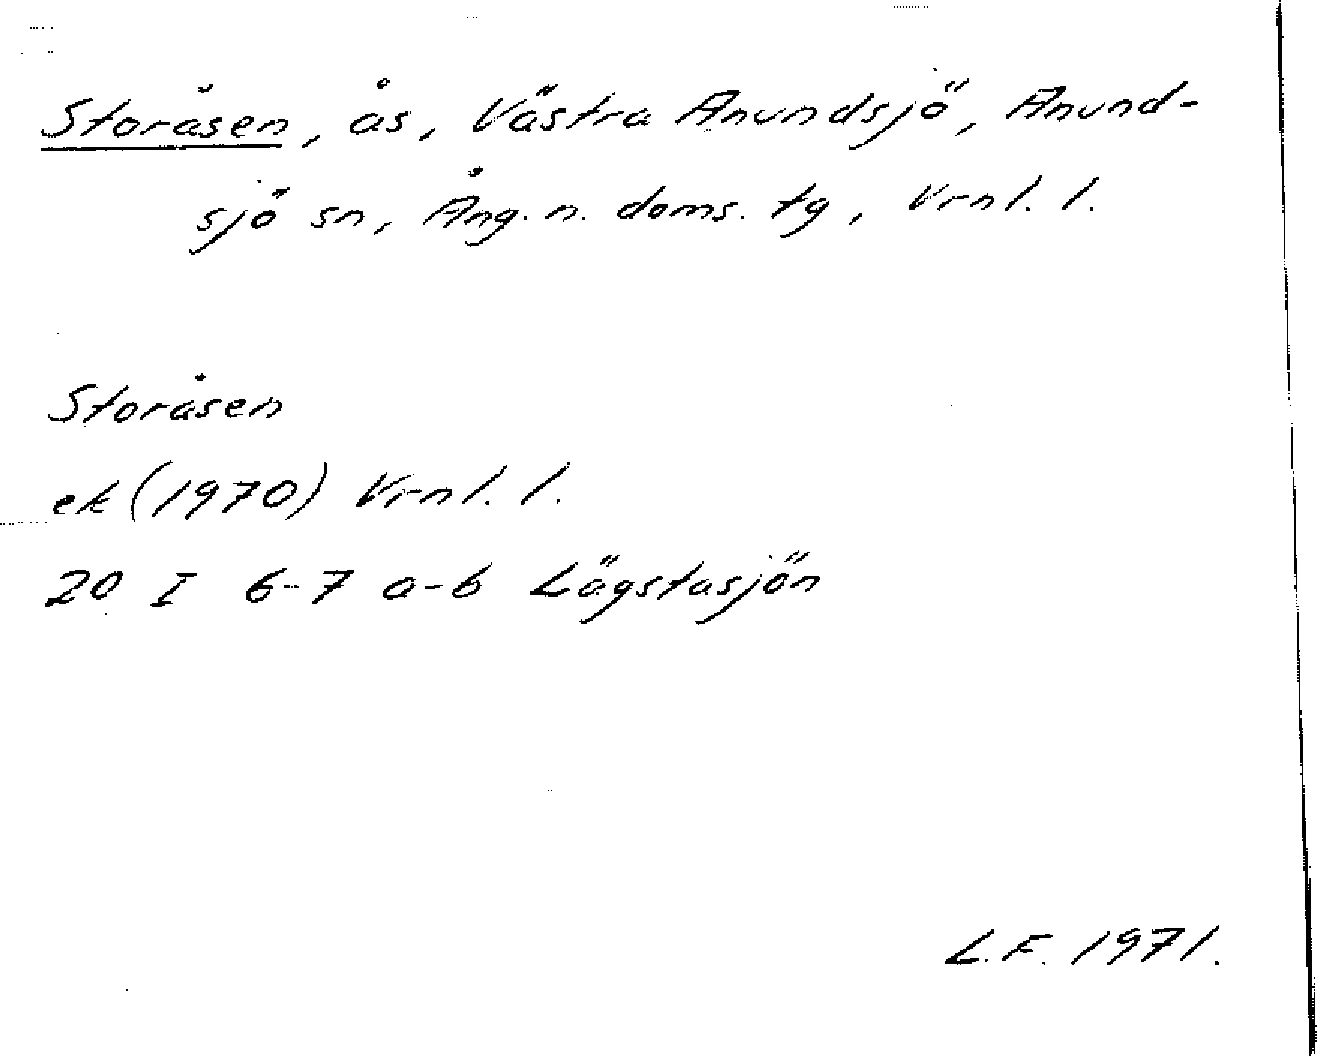 Storåsen, ås, Västra Anundsjö, Anund-
sjö sn, Ång. n. doms. tg, Vrnl. l.
Storåsen
ek (1970) Vrnl. l.
20 I 6-7 a-b Lägstasjön
L.F. 1971.